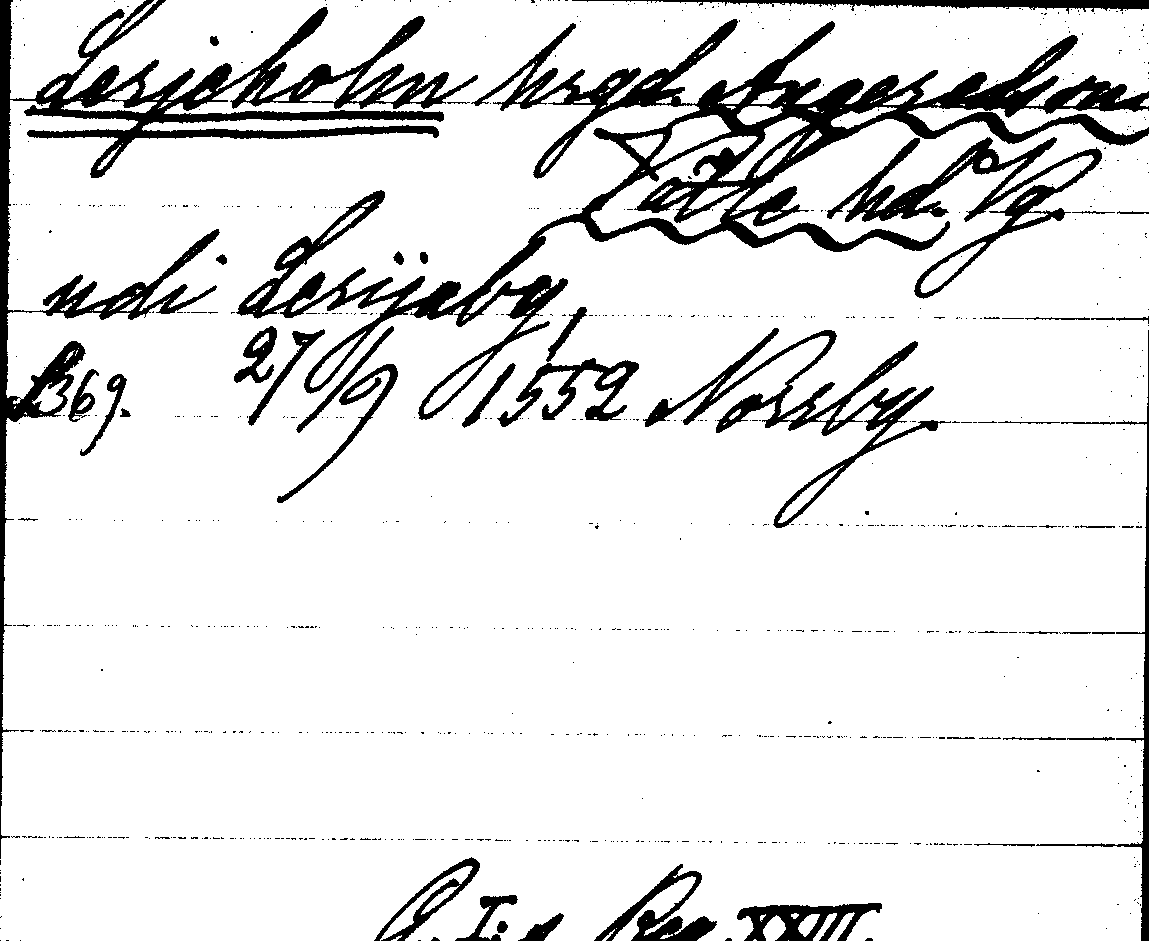 Lerjeholm hrgd. Angereds sn
Vättle hd. Vg.
ndi Lerijeby,
s. 369. 27/9 1552 Norrby.
G. I:s Reg. XXIII.